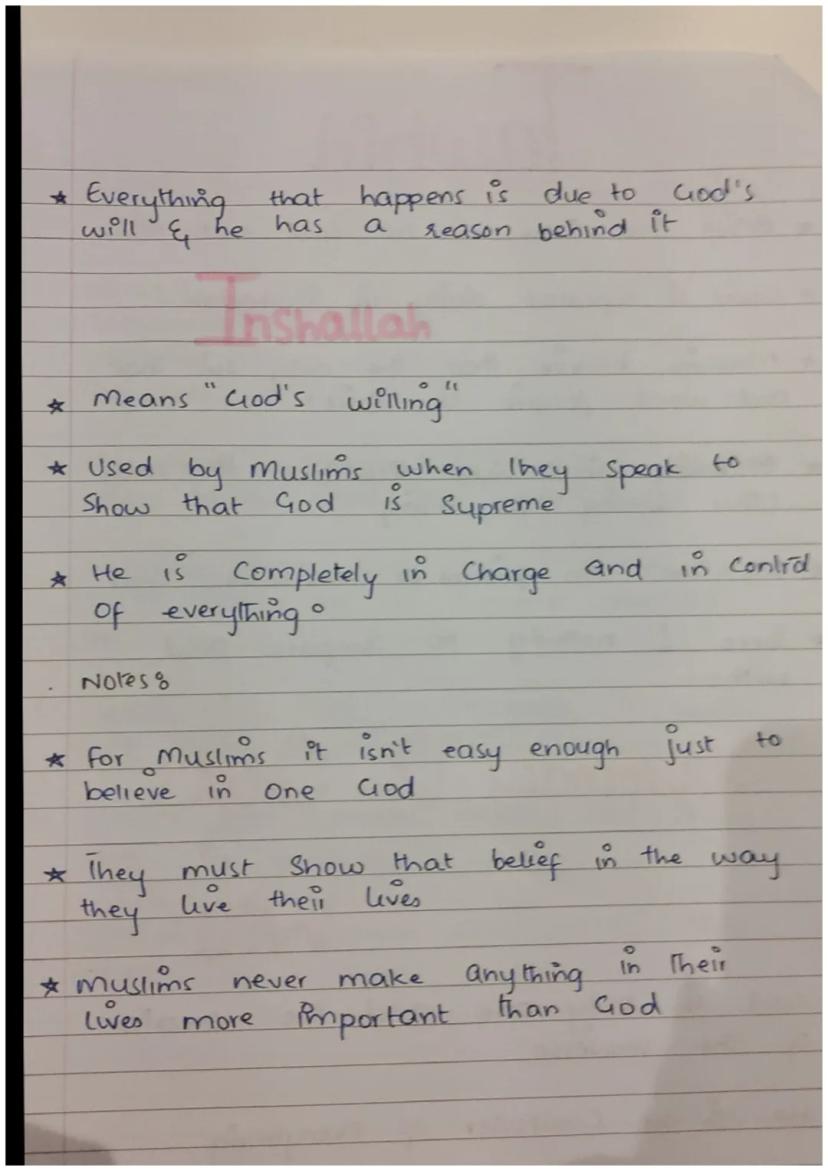 ★ Everything that happens is due to God's
will & he has a reason behind it
Inshallah
★ Means "God's willing"
★ Used by Muslims when they speak to
Show that God is Supreme
★ He is completely in charge and in control
of everything.
. Notes:
★ for Muslims it isn't easy enough just to
believe in one God
★ They must show that belief in the way
they live their lives
★ Muslims never make anything in Their
lives more important than God